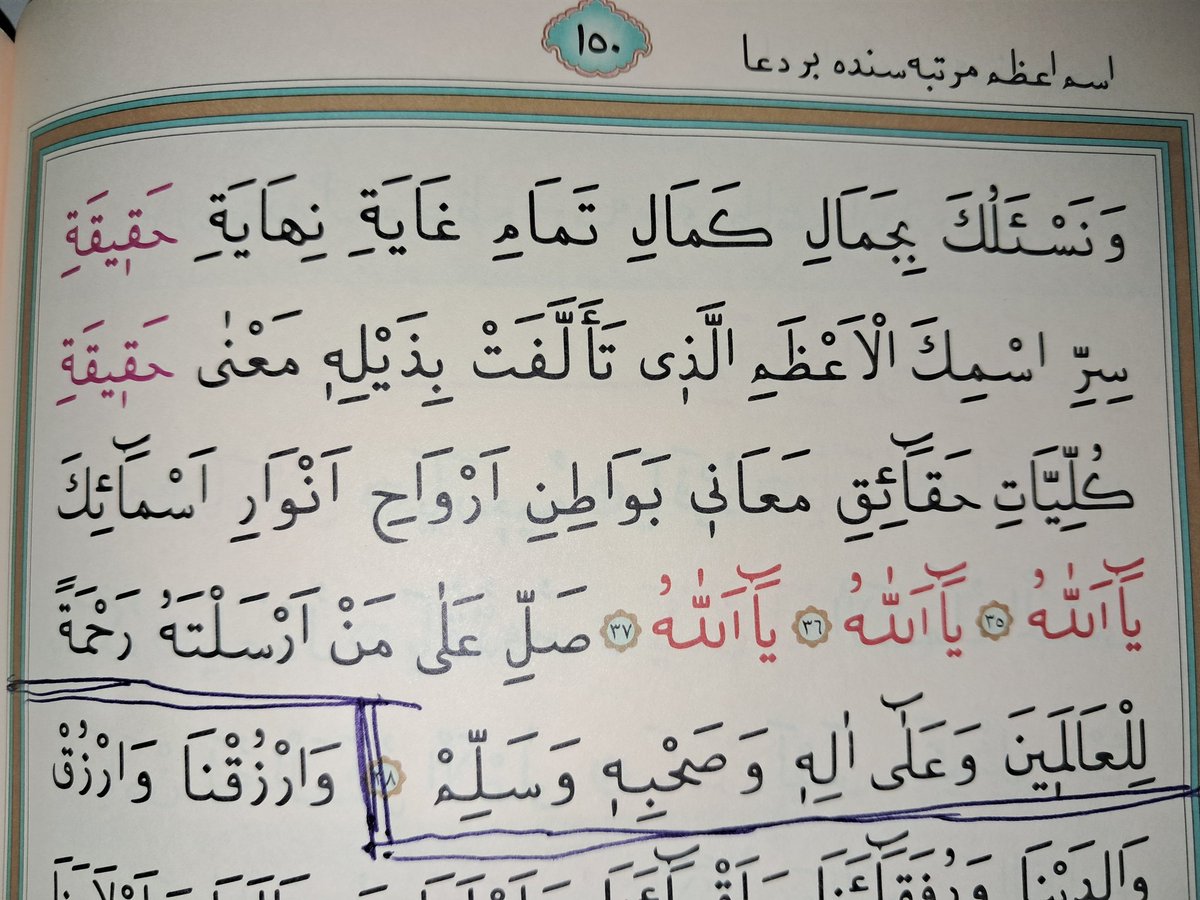 ١٥٠
اسم اعظم مرتبه سنده بر دعا
وَنَسْئَلُكَ بِجَمَالِ كَمَالِ تَمَامِ غَايَةِ نِهَايَةِ حَقٖيقَةِ
سِرِّ اسْمِكَ الْاَعْظَمِ الَّذٖى تَأَلَّفَتْ بِذَيْلِهٖ مَعْنٰى حَقٖيقَةِ
كُلِّيَّاتِ حَقَٓائِقِ مَعَانٖى بَوَاطِنِ اَرْوَاحِ اَنْوَارِ اَسْمَٓائِكَ
يَٓا اَللّٰهُ ٣٥ يَٓا اَللّٰهُ ٣٦ يَٓا اَللّٰهُ ٣٧ صَلِّ عَلٰى مَنْ اَرْسَلْتَهُ رَحْمَةً
لِلْعَالَمٖينَ وَعَلٰٓى اٰلِهٖ وَصَحْبِهٖ وَسَلِّمْ ٣٨ وَارْزُقْنَا وَارْزُقْ
وَالِدَيْنَا وَرُفَقَٓائَنَا